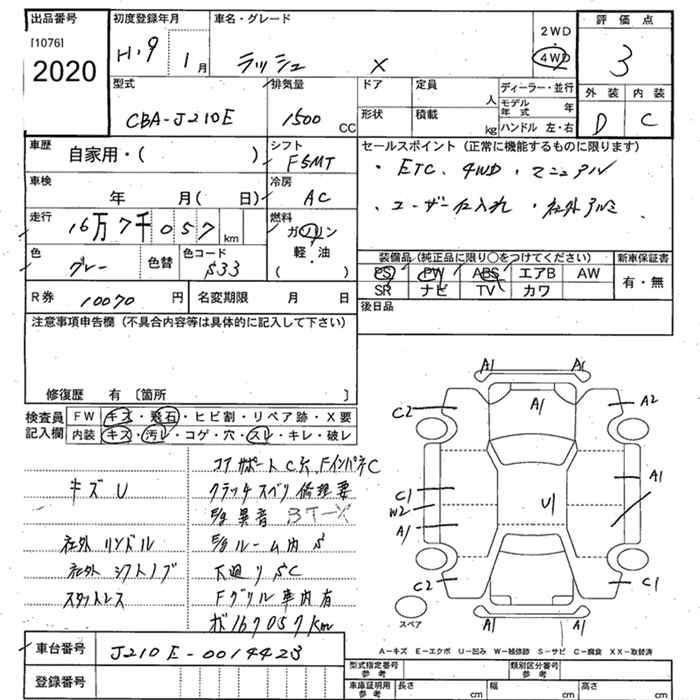 出品番号
[1076]
2020
初度登録年月
H.9 年 1月
車名・グレード
ラッシュ X
2WD
4WD
評価点
3
外装 内装
D C
型式
CBA-J210E
排気量
1500 CC
ドア 定員 人
形状 積載 kg
ディーラー・並行
モデル年式 年
ハンドル 左・右
車歴
自家用・( )
シフト
F5MT
車検
年 月( 日)
冷房
AC
走行
16万7千057 km
燃料
ガソリン
軽・油
( )
色
グレー
色替
色コード
S33
セールスポイント (正常に機能するものに限ります)
・ETC、4WD、マニュアル
・ユーザー仕入れ ・社外アルミ
装備品 (純正品に限り○をつけてください)
PS PW ABS エアB AW
SR ナビ TV カワ
新車保証書
有・無
R券 10070 円
名変期限 月 日
後日品
注意事項申告欄 (不具合内容等は具体的に記入して下さい)
修復歴 有 〔箇所 〕
検査員記入欄
FW キズ・飛石・ヒビ割・リペア跡・X要
内装 キズ・汚レ・コゲ・穴・スレ・キレ・破レ
コアサポートC穴 FインパネC
キズU
クラッチスベリ修理要
E/g異音
社外ハンドル
E/gルーム内S
社外シフトノブ
下廻りSC
スタットレス
Fグリル車内有
ﾒｰﾀ 167057km
A1 A1
C2 A1 A2
C1 A1
W2 U1
A1
C2 C1
A1 A1
スペア
A－キズ E－エクボ U－凹み W－補修跡 S－サビ C－腐食 XX－取替済
車台番号
J210E-0014423
登録番号
型式指定番号 参考
類別区分番号 参考
車庫証明用 参考
長さ cm
幅 cm
高さ cm